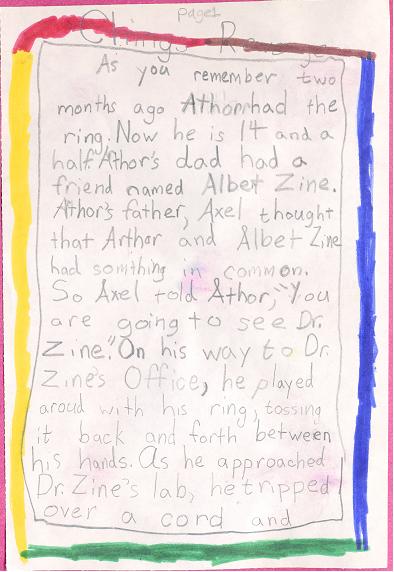 page1
Chings Re
As you remember two
months ago Athor had the
ring. Now he is 14 and a
half. Athor's dad had a
friend named Albet Zine.
Athor's father, Axel thought
that Arthor and Albet Zine
had somthing in common.
So Axel told Athor, "You
are going to see Dr.
Zine." On his way to Dr.
Zine's Office, he played
aroud with his ring, tossing
it back and forth between
his hands. As he approached
Dr. Zine's lab, he tripped
over a cord and